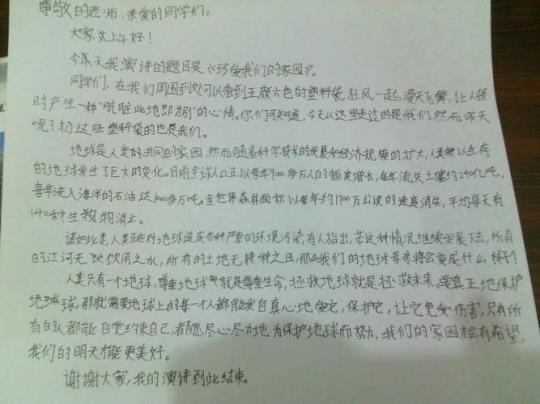 尊敬的老师、亲爱的同学们：
大家上午好！
今天我演讲的题目是《珍爱我们的家园》。
同学们，在我们周围到处可以看到五颜六色的塑料袋，狂风一起，漫天飞舞，让人顿
时产生一种"肮脏此地即刻"的心情。你们可知道，今天从这里走过的是我们，然而昨天
呢？扔这些塑料袋的也是我们。
地球是人类的共同的家园，然而随着科学技术的发展和经济规模的扩大，人类赖以生存
的地球发生了巨大的变化。目前全球人口正以每年900多万人的幅度增长，每年流失土壤约240亿吨，
每年流入海洋的石油达1000多万吨。全世界森林面积以每年约1700万公顷的速度消失，平均每天有
140种生物消亡。
诸如此类，人类正在对地球造成各种严重的环境污染，有人指出，若这种情况继续发展下去，所有
的江河无可饮用之水，所有的土地无耕种之田，那么我们的地球母亲将会变成什么样子？
人类只有一个地球，尊重地球就是尊重生命，拯救地球就是拯救未来，要真正地保护
地球，那就需要地球上的每一个人都能发自真心地爱它，保护它，让它免受伤害，只有所
有的人都能自觉约束自己，都愿尽心尽力地为保护地球而努力，我们的家园极有希望，
我们的明天才能更美好。
谢谢大家，我的演讲到此结束。